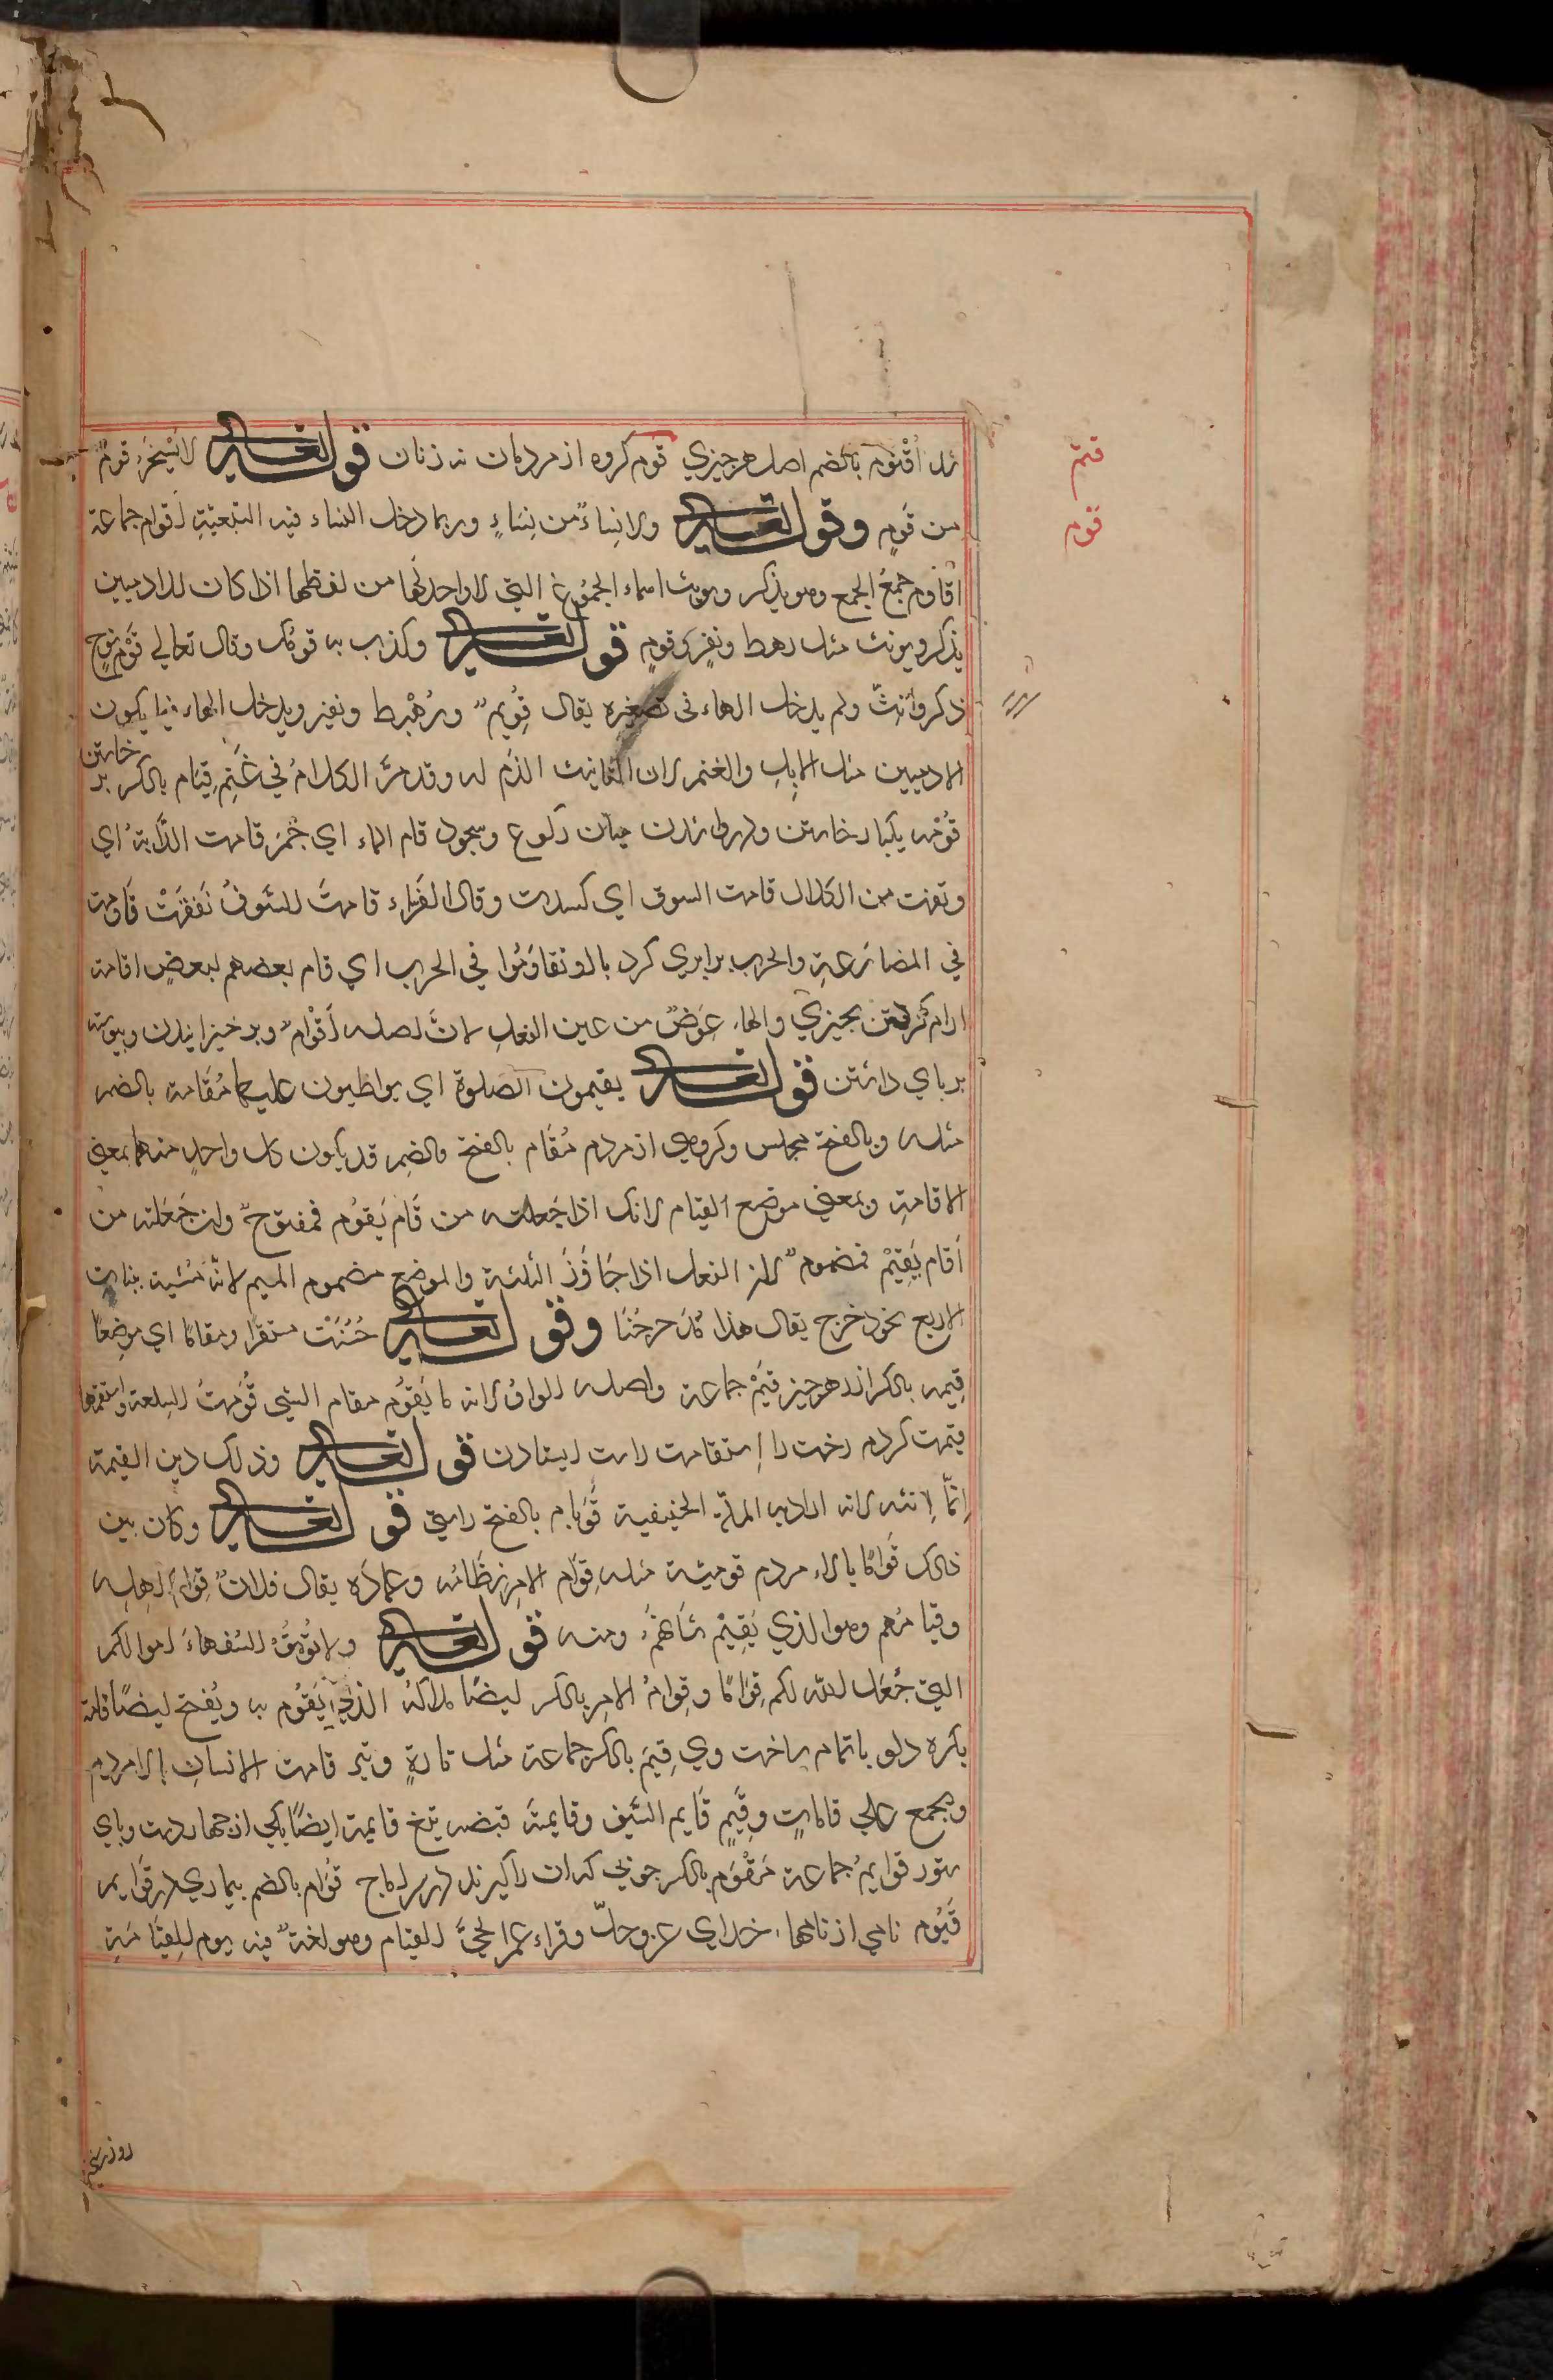 قتم
قوم
اقنوم بالضم اصل هر چیزی قوم کروه از مردمان نه زنان قوله تعالی لا یسخر قوم
من قوم وقوله تعالی ولا نساء من نساء وربما دخل النساء فیه التبعیة اقوام جماعة
اقاوم جمع الجمع وهو یذکر ویونث اسماء الجموع التی لا واحد لها من لفظها اذا کان للادمیین
یذکر ویونث مثل رهط ونفر وقوم قوله تعالی وکذب به قومک وقال تعالی قوم نوح
ذکر وانث ولم یدخل الهاء فی تصغیره یقال قویم ورهیط ونفیر ویدخل الهاء فیما یکون
الادمیین مثل الابل والغنم لان التانیث لازم له وقد مر الکلام فی غنم قیام بالکسر بر خاستن
قومه یکبار خاستن میان رکوع وسجود قام الماء ای جمد قامت الدابة ای
وقفت من الکلال قامت السوق ای کسدت وقال الفراء قامت السوق نفقت قاومت
فی المضارعة والحرب برابری کرد با او تقاوموا فی الحرب ای قام بعضهم لبعض اقامة
ارام کرفتن بجیزی والهاء عوض من عین الفعل لان اصله اقوام وبر خیزانیدن وپیوسته
بر پای داشتن قوله تعالی یقیمون الصلوة ای یواظبون علیها مقامة بالضم
مثله وبالفتح مجلس وکروهی از مردم مقام بالفتح والضم قد یکون کل واحد منهما بمعنی
الاقامة وبمعنی موضع القیام لانک اذا جعلته من قام یقوم فمفتوح وان جعلته من
اقام یقیم فمضموم لان الفعل اذا جاوز الثلثة والموضع مضموم المیم لانه مشبه ببنات
الاربع نحو دحرج یقال هذا مدحرجنا وقوله تعالی حسنت مستقرا ومقاما ای موضعا
قیمة بالکسر ارز هر چیز قیم جماعة واصله الواو لانه ما یقوم مقام الشی قومت السلعة واستقمتها
قیمت کردم رخت را استقامت راست ایستادن قوله تعالی وذلک دین القیمة
انما انثه لانه اراد به الملة الحنیفیة قوام بالفتح راستی قوله تعالی وکان بین
ذلک قواما بالاء مردم قومیة مثله قوام الامر نظامه وعماده یقال فلان قوام اهله
وقیامهم وهو الذی یقیم شانهم ومنه قوله تعالی ولا توتوا السفهاء اموالکم
التی جعل الله لکم قواما وقوام الامر بالکسر ایضا ملاکه الذی یقوم به ویفتح ایضا قامة
بکره دلو باتمام ساخت وی قیم بالکسر جماعة مثل تارة وتیر قامت الانسان بالا مردم
ویجمع علی قامات وقیم قایم السیف وقایمته قبضه تیغ قایمة ایضا یکی از چهار دست وپای
ستور قوایم جماعة مقوم بالکسر چوبی قوام بالضم بیماری در قوایم
قیوم نامی از نامهاء خدای عز وجل وقراء عمر الحی القیام وهو لغة فیه یوم القیامة
روز رستخیز